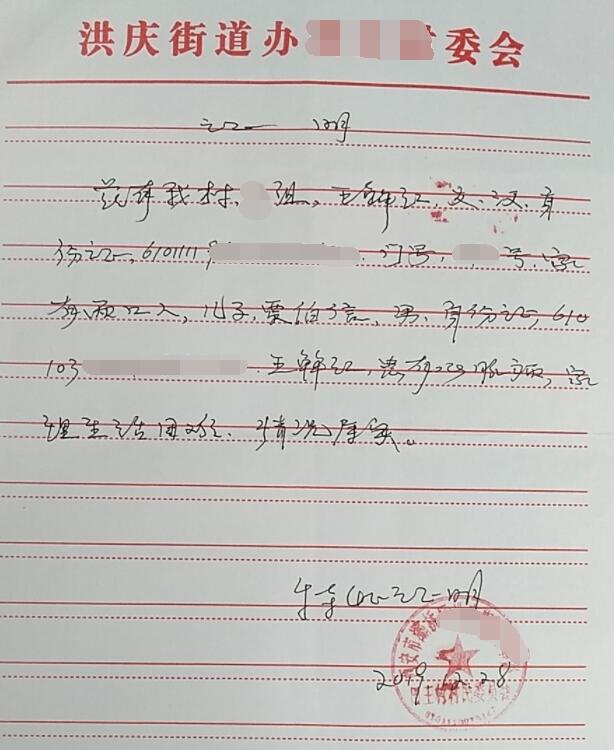 洪庆街道办 委会
证 明
兹有我村 组, 王解红, 女, 汉, 身
份证, 610111 门号, 号, 家
有两口人, 儿子, 贾伯信, 男, 身份证 610
103 王解红, 患有 脉 家
理生活困难, 情况属实。
特此证明
2019.12.28